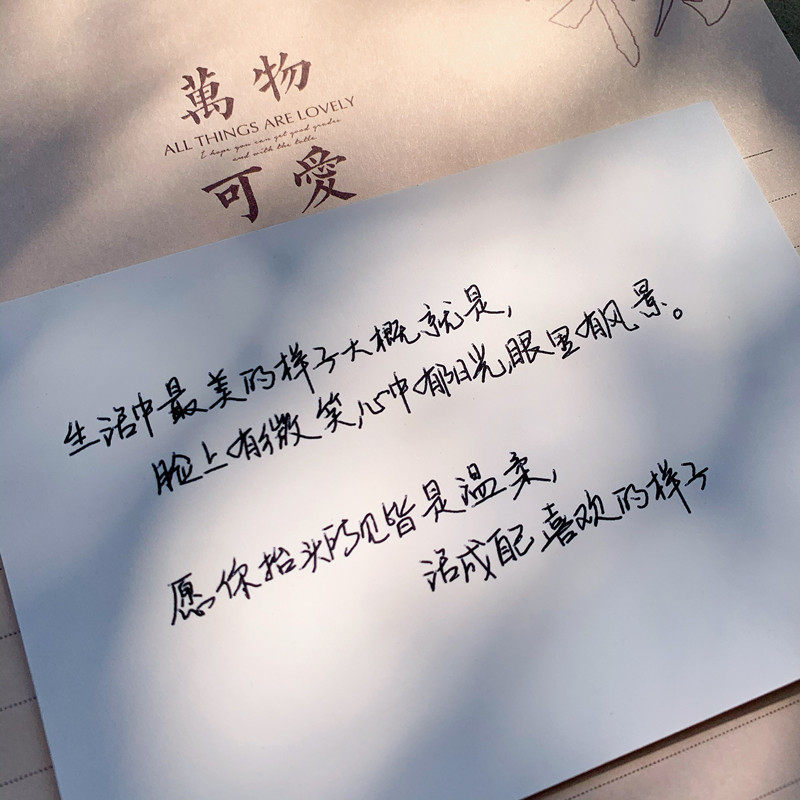 萬物
ALL THINGS ARE LOVELY
I hope you can get good grades
and with the title
可愛
生活中最美的样子大概就是,
脸上有微笑,心中有阳光,眼里有风景。
愿你抬头所见皆是温柔,
活成自己喜欢的样子